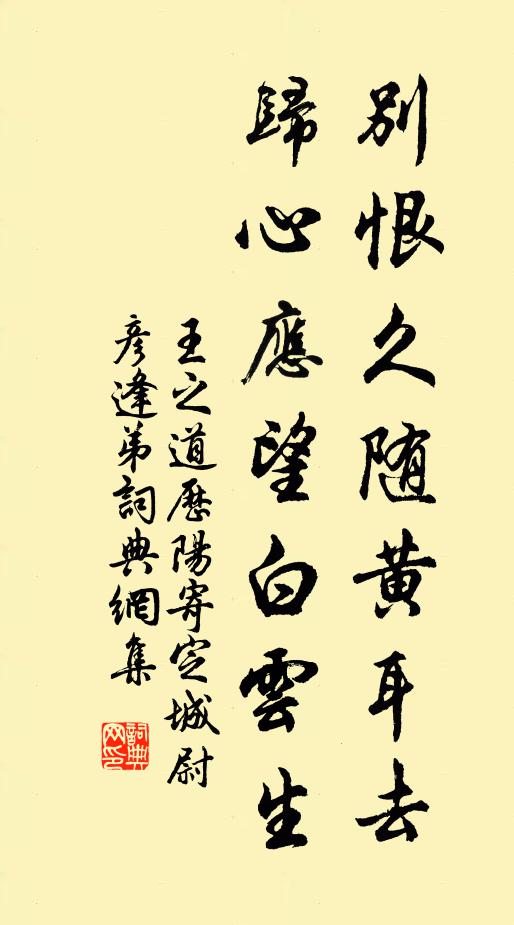 別恨久随黄耳去
歸心應望白雲生
王之道歷陽寄定城尉
彦逢弟詞典網集
詞典网印